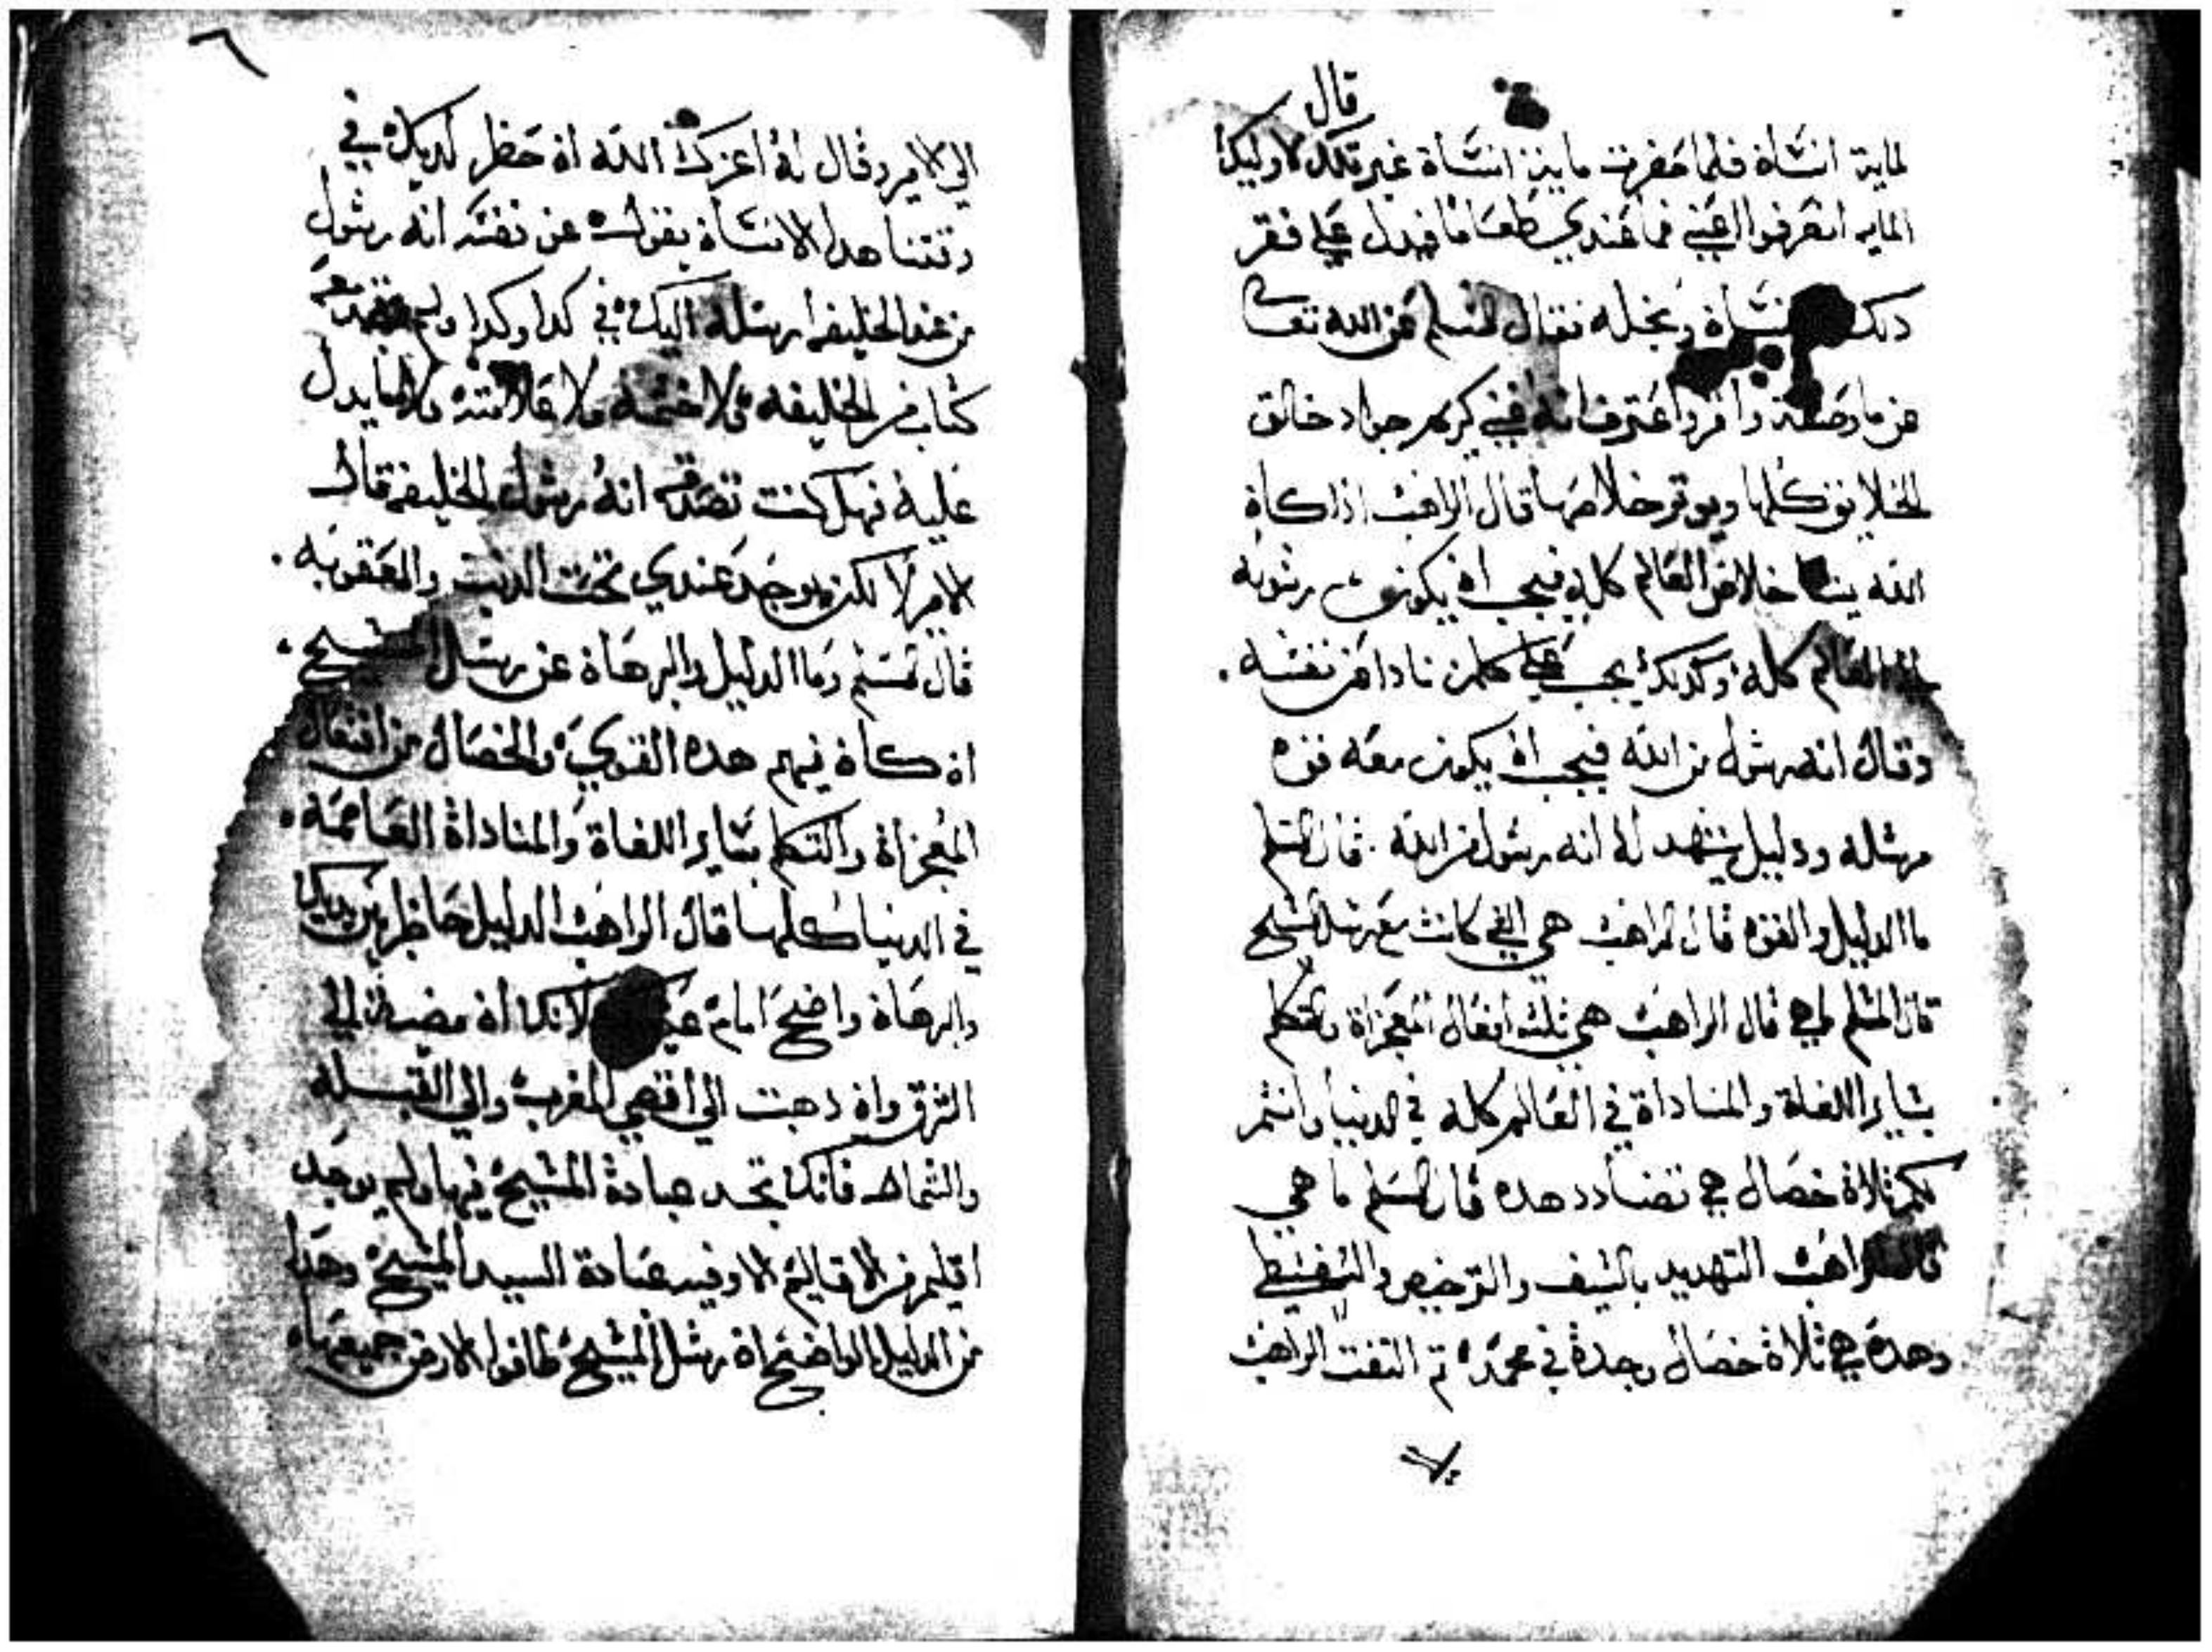 قال
لماية انسان فلما حضرت مايتن انسان غير تلك لاوليك
المايه انصرفوا عني فما عندي طعاما فيدل علي فقر
دلك وبخله فقال المسلم عن الله تعا
عن ما وصفته واقر واعترف انه غني كريم جواد خالق
الخلايق كلها ويوتر خلاصها قال الراهب ادا كان
الله يشا خلاص العالم كله فيجب ان يكون رسوله
العالم كله وكدلك يجب علي كلمن نادا عن نفسه .
وقال انه رسول من الله فيجب ان يكون معه قوه
مرسله ودليل يشهد له انه رسول من الله . قال المسلم
ما الدليل والقوه قال الراهب هي التي كانت مع رسل المسيح
قال المسلم ما هي قال الراهب هي تلته افعال المعجزاة والتكلم
بساير اللغاة والمناداة في العالم كله في الدنيا وانتم
لكم تلاتة خصال هي تضادد هده قال المسلم ما هي
قال الراهب التهديد بالسيف والترخيص والتبسيط
وهده هي تلاتة خصال وجدة في محمد تم التفت الراهب
٦
الي الامير وقال له اعزك الله ان حضر لديك في
وقتنا هدا الانسان يقول عن نفسه انه رسول
من عند الخليفه ارسله اليك في كدا وكدا ولم معه
كتاب من الخليفه ولا ختمه ولا علامته ولا ما يدل
عليه فهل كنت تصدقه انه رسول الخليفه قال
الامير لا لكن يوجد عندي تحت الدنب والعقوبه .
قال المسلم وما الدليل والبرهان عن رسل المسيح .
ان كان فيهم هده القوي والخصال من افتعال
المعجزاة والتكلم بساير اللغاة والمناداة العاممه .
في الدنيا كلها قال الراهب الدليل حاضر بين يديك
والبرهان واضح امام لانك ان مضيت الي
الشرق وان دهبت الي اقصي المغرب والي القبله
والشمال فانك تجد عبادة المسيح فيها ولم يوجد
اقليم من الاقاليم الا وفيه عبادة السيد المسيح وهدا
من الدليل الواضح ان رسل المسيح طافوا الارض جميعها